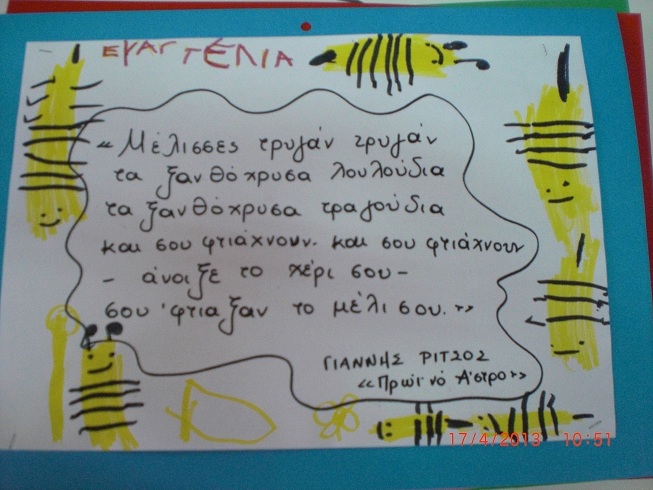 ΕΥΑΓΓΕΛΙΑ
«Μέλισσες τρυγάν τρυγάν
τα ξανθόχρυσα λουλούδια
τα ξανθόχρυσα τραγούδια
και σου φτιάχνουν. και σου φτιάχνουν
- άνοιξε το χέρι σου-
σου 'φτιαξαν το μέλι σου.»
ΓΙΑΝΝΗΣ ΡΙΤΣΟΣ
«Πρωινό Άστρο»
17/4/2013 10:51